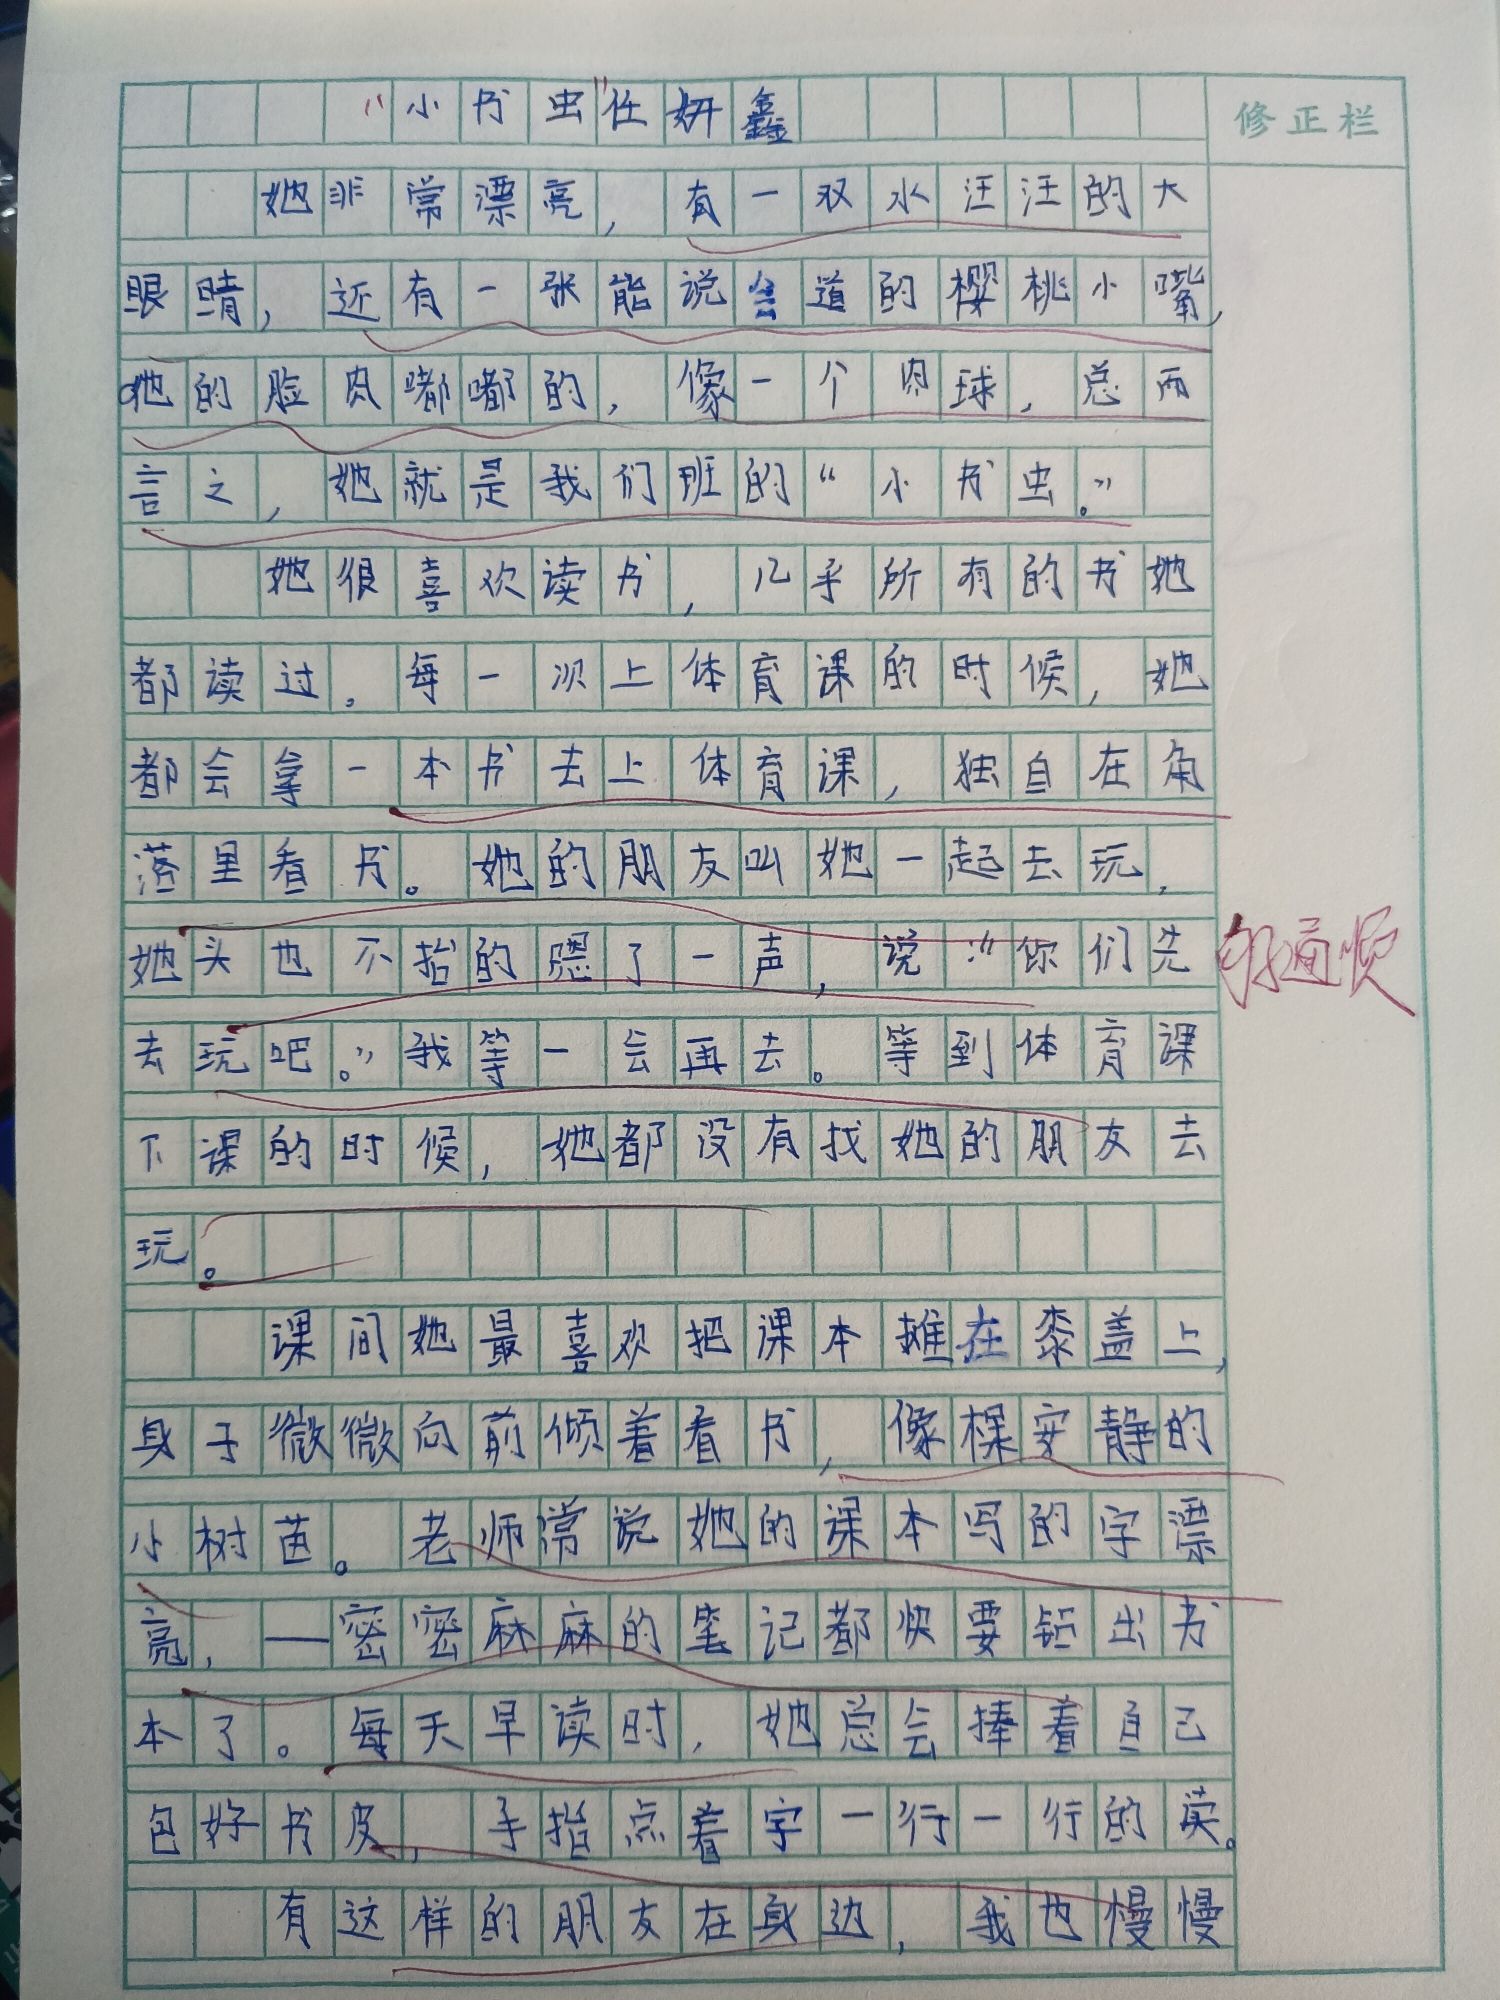 “小书虫”任妍鑫
修正栏
她非常漂亮，有一双水汪汪的大
眼睛，近有一张能说会道的樱桃小嘴，
她的脸肉嘟嘟的，像一个肉球，总而
言之，她就是我们班的“小书虫。”
她很喜欢读书，几乎所有的书她
都读过。每一次上体育课的时候，她
都会拿一本书去上体育课，独自在角
落里看书。她的朋友叫她一起去玩，
她头也不抬的嗯了一声，说：“你们先
去玩吧。”我等一会再去。等到体育课
下课的时候，她都没有找她的朋友去
玩。
课间她最喜欢把课本摊在桼盖上，
身子微微向前倾着看书，像棵安静的
小树苗。老师常说她的课本写的字漂
亮，——密密麻麻的笔记都快要钜出书
本了。每天早读时，她总会捧着自己
包好书皮，手指点着字一行一行的读。
有这样的朋友在身边，我也慢慢